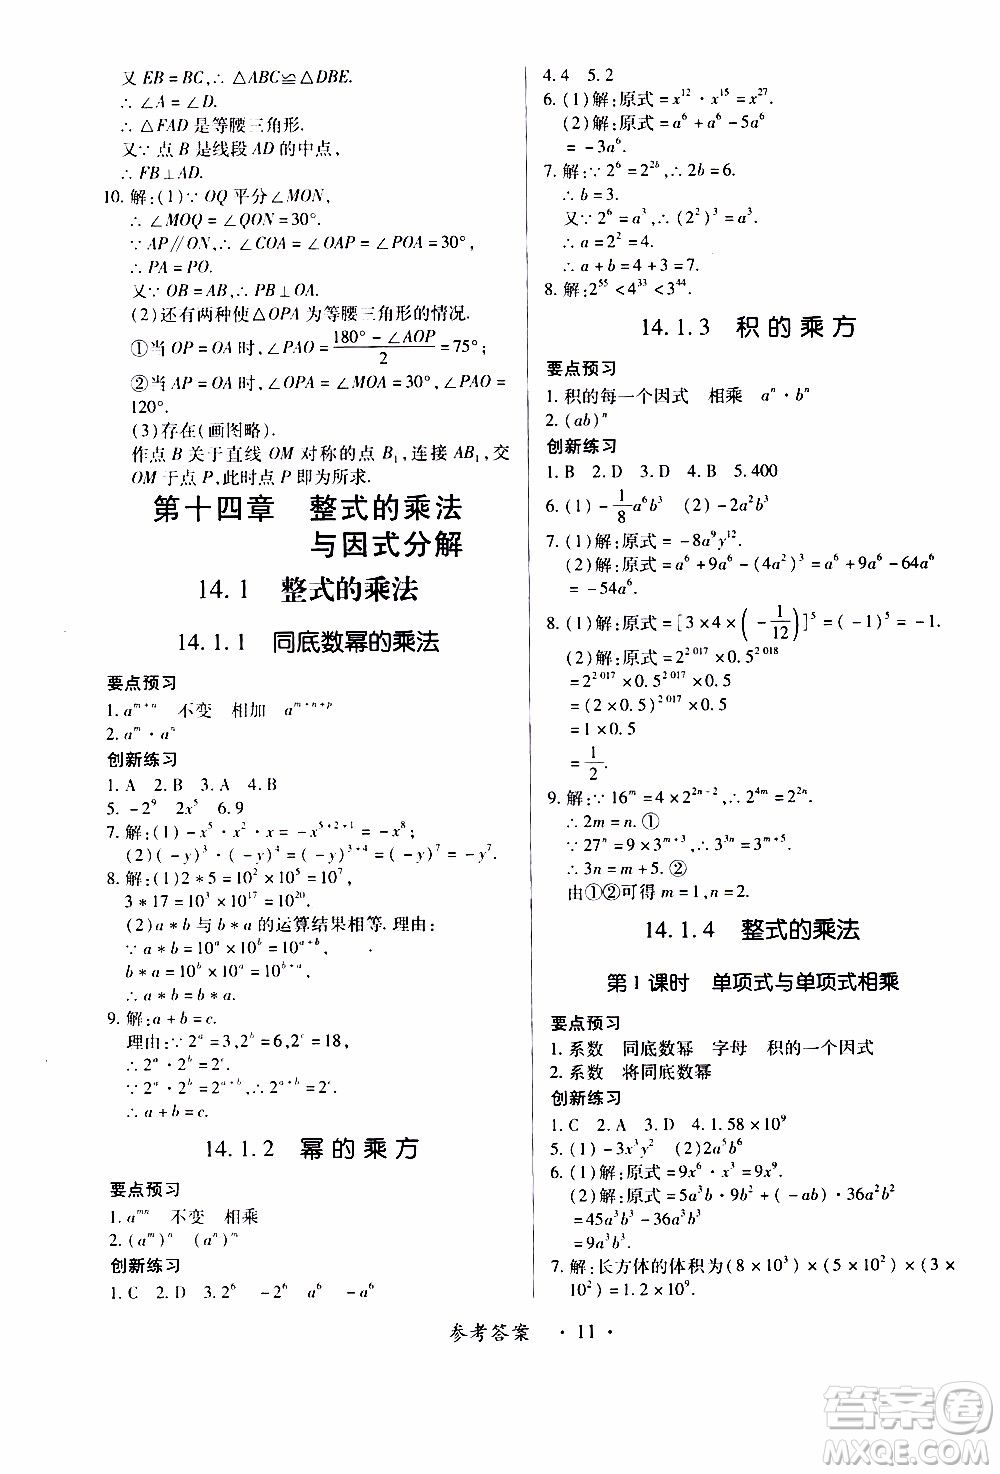 又 EB = BC,∴ △ABC≌△DBE.
∴ ∠A = ∠D.
∴ △FAD 是等腰三角形.
又∵ 点 B 是线段 AD 的中点,
∴ FB⊥AD.
10. 解:(1)∵ OQ 平分∠MON,
∴ ∠MOQ = ∠QON = 30°.
∵ AP∥ON,∴ ∠COA = ∠OAP = ∠POA = 30°,
∴ PA = PO.
又∵ OB = AB,∴ PB⊥OA.
(2)还有两种使△OPA 为等腰三角形的情况.
①当 OP = OA 时,∠PAO = (180° − ∠AOP)/2 = 75°;
②当 AP = OA 时,∠OPA = ∠MOA = 30°,∠PAO =
120°.
(3)存在(画图略).
作点 B 关于直线 OM 对称的点 B₁,连接 AB₁,交
OM 于点 P,此时点 P 即为所求.
第十四章 整式的乘法
与因式分解
14.1 整式的乘法
14.1.1 同底数幂的乘法
要点预习
1. a^(m+n) 不变 相加 a^(m+n+p)
2. a^m · a^n
创新练习
1. A 2. B 3. A 4. B
5. −2⁹ 2x⁵ 6. 9
7. 解:(1) −x⁵ · x² · x = −x^(5+2+1) = −x⁸.
(2)(−y)³ · (−y)⁴ = (−y)^(3+4) = (−y)⁷ = −y⁷.
8. 解:(1)2 * 5 = 10² × 10⁵ = 10⁷,
3 * 17 = 10³ × 10¹⁷ = 10²⁰.
(2)a * b 与 b * a 的运算结果相等. 理由:
∵ a * b = 10^a × 10^b = 10^(a+b),
b * a = 10^b × 10^a = 10^(a+b),
∴ a * b = b * a.
9. 解:a + b = c.
理由:∵ 2^a = 3,2^b = 6,2^c = 18,
∴ 2^a × 2^b = 2^c.
∵ 2^a × 2^b = 2^(a+b),∴ 2^(a+b) = 2^c.
∴ a + b = c.
14.1.2 幂的乘方
要点预习
1. a^(mn) 不变 相乘
2. (a^m)^n (a^n)^m
创新练习
1. C 2. D 3. 2⁶ −2⁶ a⁶ −a⁶
4. 4 5. 2
6. (1)解:原式 = x¹² · x¹⁵ = x²⁷.
(2)解:原式 = a⁶ + a⁶ − 5a⁶
= −3a⁶.
7. 解:∵ 2⁶ = 2^(2b),∴ 2b = 6.
∴ b = 3.
又∵ 2⁶ = a³,∴ (2²)³ = a³.
∴ a = 2² = 4.
∴ a + b = 4 + 3 = 7.
8. 解:2⁵⁵ < 4³³ < 3⁴⁴.
14.1.3 积的乘方
要点预习
1. 积的每一个因式 相乘 a^n · b^n
2. (ab)^n
创新练习
1. B 2. D 3. D 4. B 5. 400
6. (1) −1/8 a⁶b³ (2) −2a²b⁶
7. (1)解:原式 = −8a⁹y¹².
(2)解:原式 = a⁶ + 9a⁶ − (4a²)³ = a⁶ + 9a⁶ − 64a⁶
= −54a⁶.
8. (1)解:原式 = [3 × 4 × (−1/12)]⁵ = (−1)⁵ = −1.
(2)解:原式 = 2^(2 017) × 0.5^(2 018)
= 2^(2 017) × 0.5^(2 017) × 0.5
= (2 × 0.5)^(2 017) × 0.5
= 1 × 0.5
= 1/2.
9. 解:∵ 16^m = 4 × 2^(2n−2),∴ 2^(4m) = 2^(2n).
∴ 2m = n. ①
∵ 27^n = 9 × 3^(m+3),∴ 3^(3n) = 3^(m+5).
∴ 3n = m + 5. ②
由①②可得 m = 1,n = 2.
14.1.4 整式的乘法
第1课时 单项式与单项式相乘
要点预习
1. 系数 同底数幂 字母 积的一个因式
2. 系数 将同底数幂
创新练习
1. C 2. A 3. D 4. 1.58 × 10⁹
5. (1) −3x³y² (2)2a⁵b⁶
6. (1)解:原式 = 9x⁶ · x³ = 9x⁹.
(2)解:原式 = 5a³b · 9b² + (−ab) · 36a²b²
= 45a³b³ − 36a³b³
= 9a³b³.
7. 解:长方体的体积为(8 × 10³) × (5 × 10²) × (3 ×
10²) = 1.2 × 10⁹.
参考答案 · 11 ·
答案圈
MXQE.COM